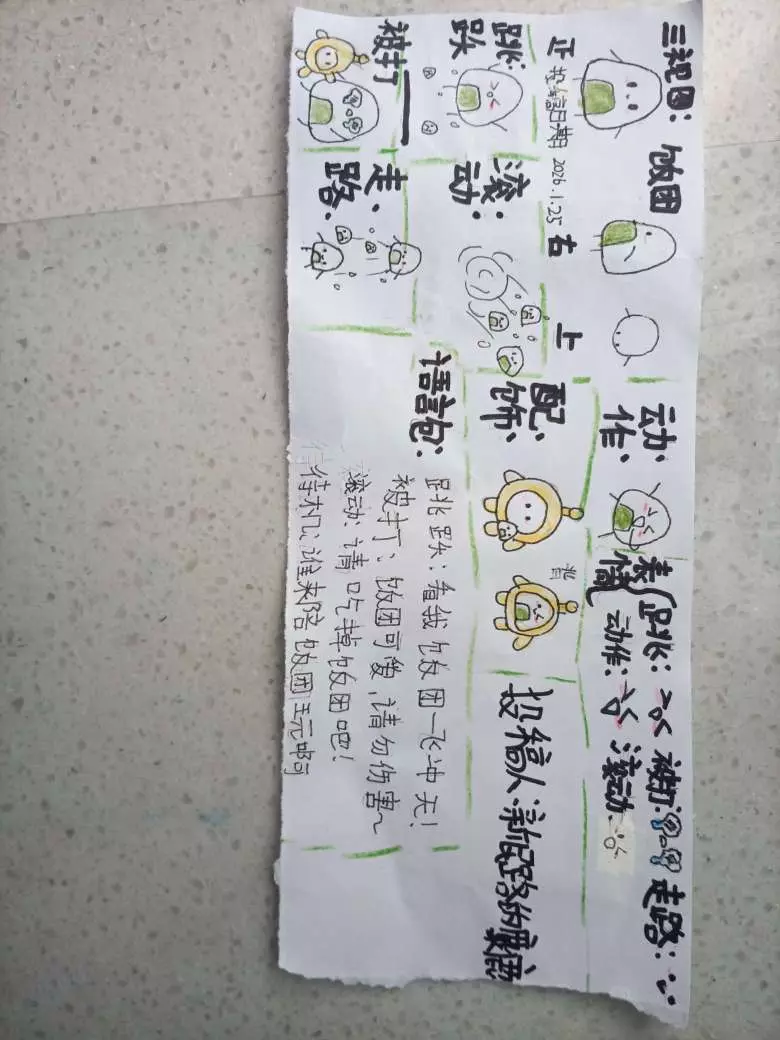 三视图：饭团
正
右
上
投稿日期 2026.1.25
动作：
表情
跳：
被打：
走路：
动作：
滚动：
跳跃：
滚动：
配饰：
背
投稿人：
被打
走路：
语言包：
跳跃：看我饭团一飞冲天！
被打：饭团可爱，请勿伤害~
滚动：请吃掉饭团吧！
待机：谁来陪饭团玩啊